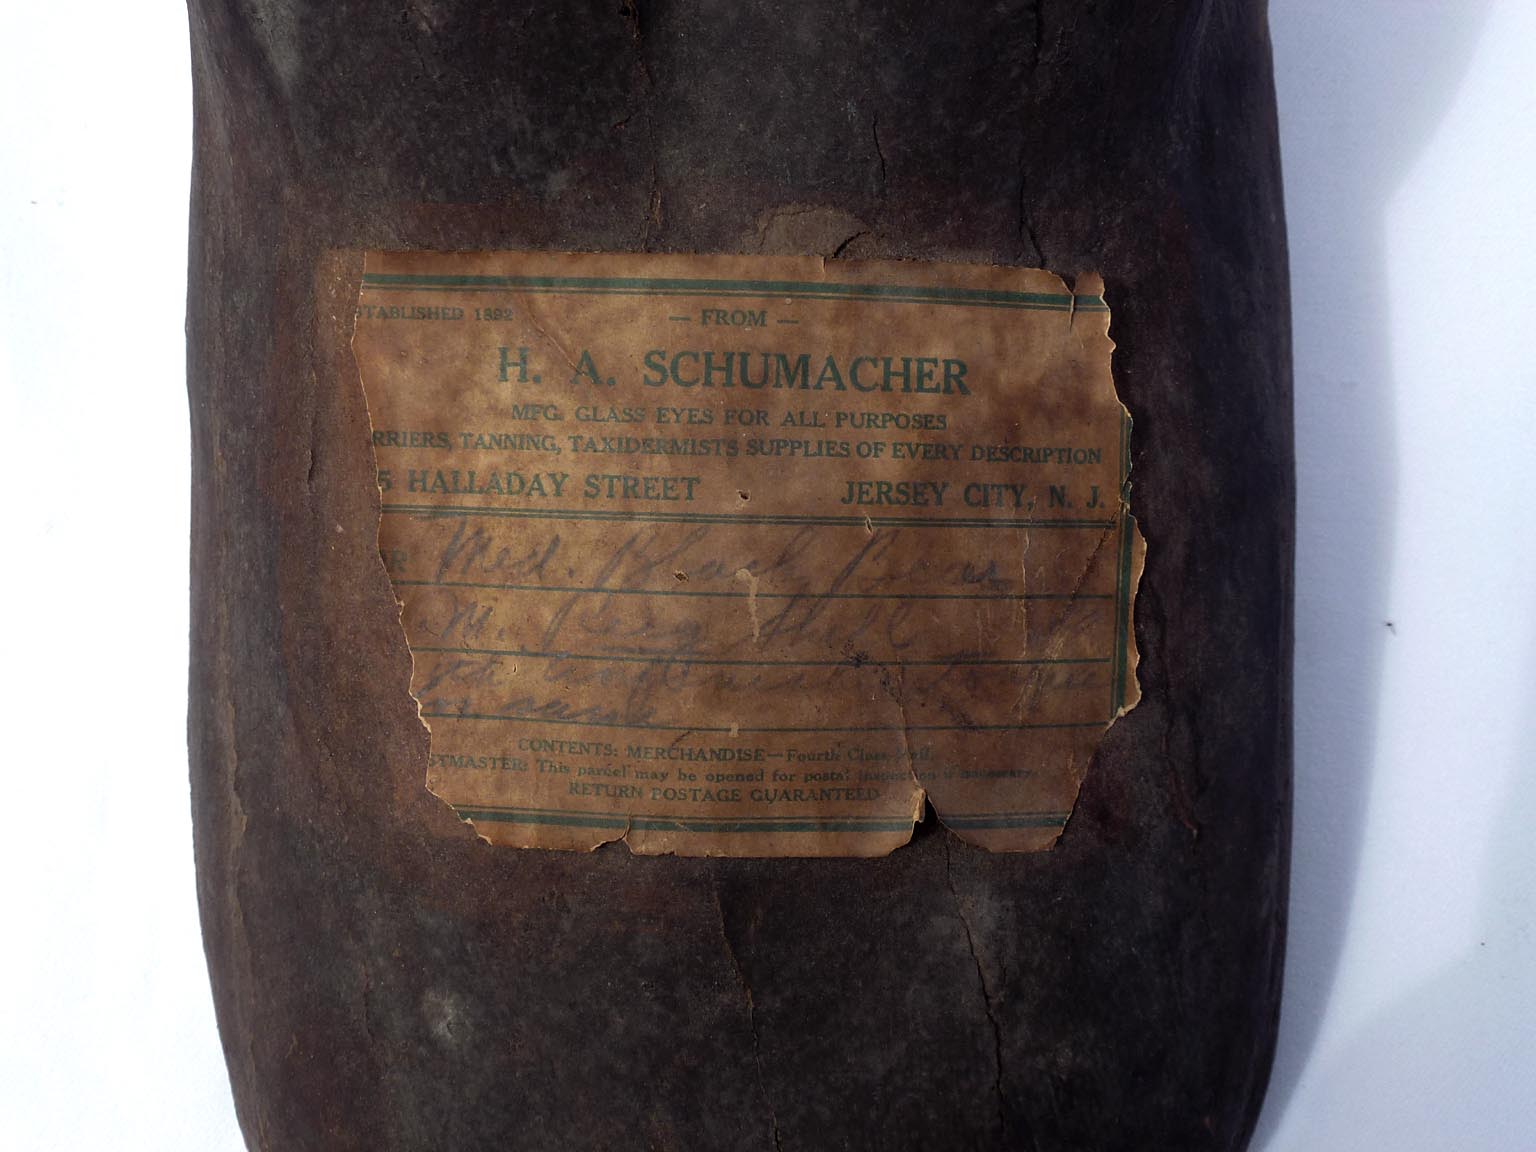 STABLISHED 1892
— FROM —
H. A. SCHUMACHER
MFG. GLASS EYES FOR ALL PURPOSES
RRIERS, TANNING, TAXIDERMISTS SUPPLIES OF EVERY DESCRIPTION
5 HALLADAY STREET JERSEY CITY, N. J.
R Med. Black Bear
M. Rug Shell
CONTENTS: MERCHANDISE—Fourth Class
STMASTER: This parcel may be opened for postal inspection if necessary.
RETURN POSTAGE GUARANTEED